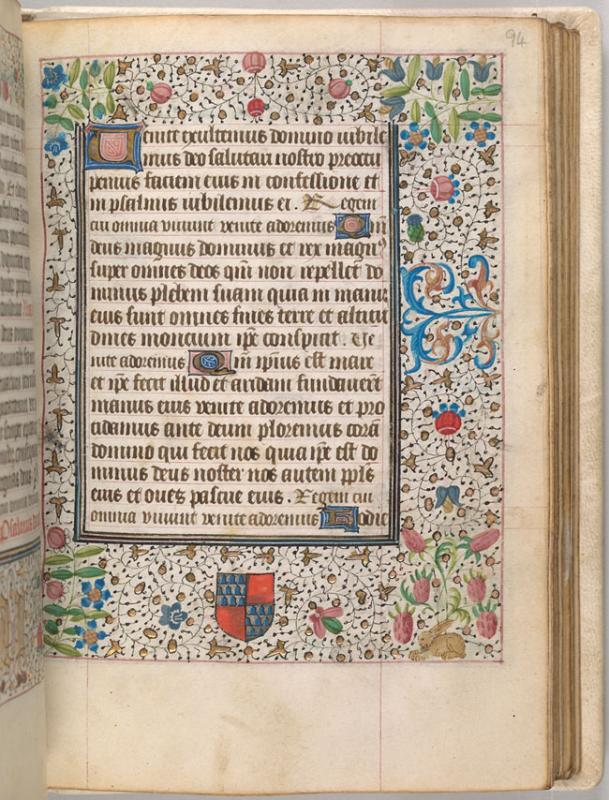 94
Venite exultemus domino iubile
mus deo salutari nostro preoccu
pemus faciem eius in confessione et
in psalmis iubilemus ei. Regem
cui omnia viuunt venite adoremus Qm
deus magnus dominus et rex magnus
super omnes deos qm non repellet do
minus plebem suam quia in manu
eius sunt omnes fines terre et altitu
dines moncium ipse conspicit. Ve
nite adoremus Qm ipsius est mare
et ipse fecit illud et aridam fundauert
manus eius venite adoremus et pro
cidamus ante deum ploremus cora
domino qui fecit nos quia ipse est do
minus deus noster nos autem ppls
eius et oues pascue eius. Regem cui
omnia viuunt venite adoremus Hodie